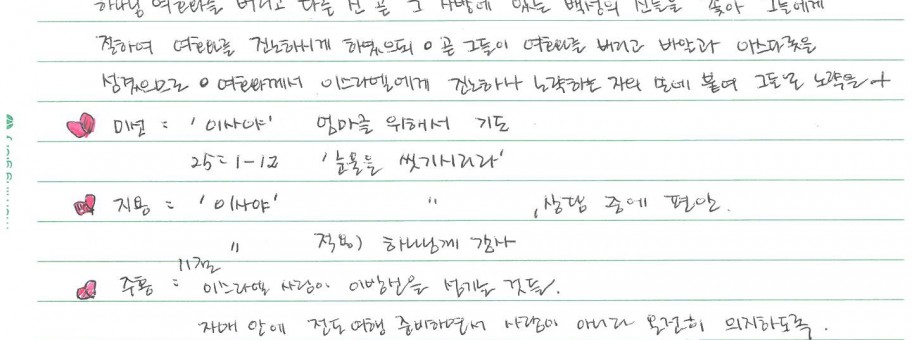 하나님 여호와를 버리고 다른 신 곧 그 사방에 있는 백성의 신들을 쫓아 그들에게
절하여 여호와를 진노하시게 하였으되 o 곧 그들이 여호와를 버리고 바알과 아스다롯을
섬겼으므로 o 여호와께서 이스라엘에게 진노하사 노략하는 자의 손에 붙여 그들로 노략을
미선 : '이사야' 엄마를 위해서 기도
25:1-12 '눈물을 씻기시리라'
지용 : '이사야' " , 상담 중에 편안.
" 적용) 하나님께 감사
11절
주홍 : 이스라엘 사람이 이방신을 섬기는 것들.
자매 안에 전도여행 준비하면서 사람이 아니라 온전히 의지하도록.